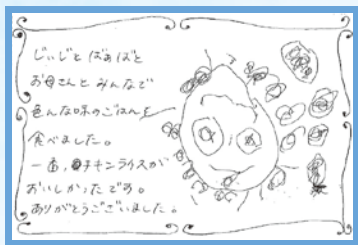 じぃじとばぁばと
お母さんとみんなで
色んな味のごはんを
食べました。
一番、チキンライスが
おいしかったです。
ありがとうございました。